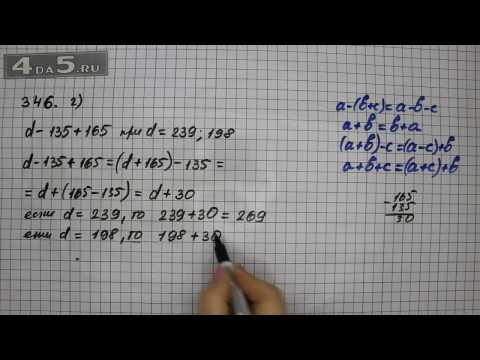 4DA5.RU
346. г)
d-135+165 при d=239; 198
d-135+165=(d+165)-135=
=d+(165-135)=d+30
если d=239, то 239+30=269
если d=198, то 198+30
a-(b+c)=a-b-c
a+b=b+a
(a+b)-c=(a-c)+b
a+b+c=(a+c)+b
165
-
135
30